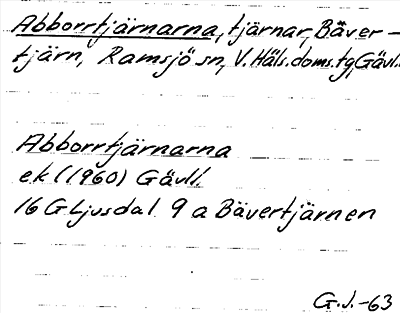 Abborrtjärnarna, tjärnar, Bäver-
tjärn, Ramsjö sn, V. Häls. doms. tg, Gävl.
Abborrtjärnarna
ek (1960) Gävl.
16 G Ljusdal 9 a Bävertjärnen
G.J. -63